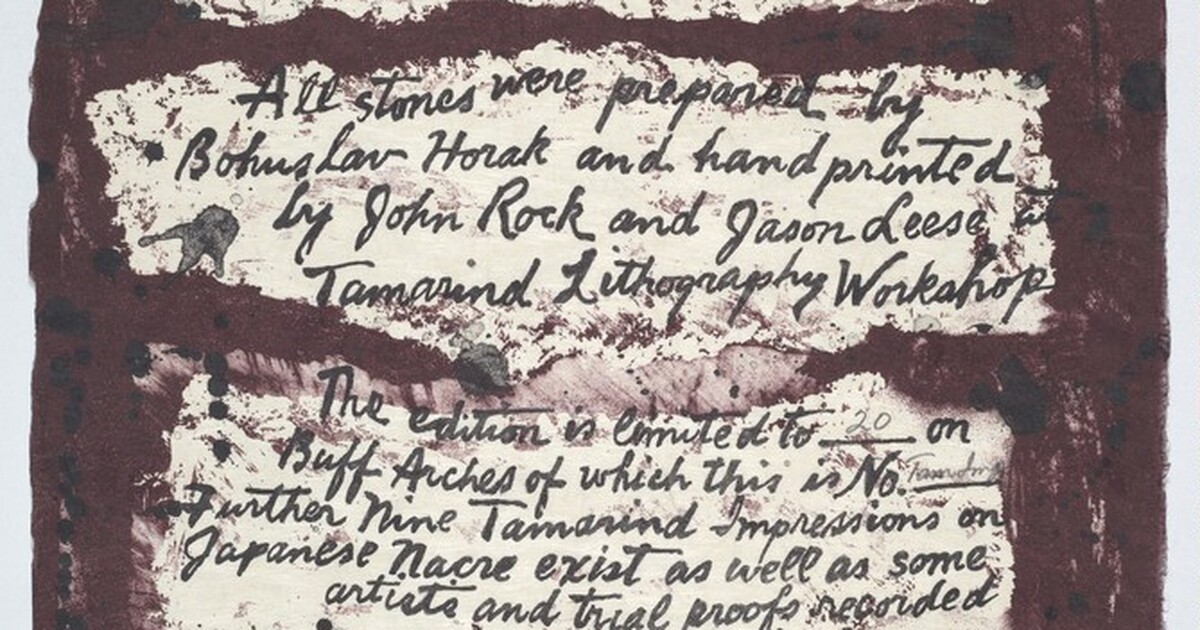 All stones were prepared by
Bohuslav Horak and hand printed
by John Rock and Jason Leese at
Tamarind Lithography Workshop
The edition is limited to 20 on
Buff Arches of which this is No.
Further Nine Tamarind Impressions on
Japanese Nacre exist as well as some
artists and trial proofs recorded